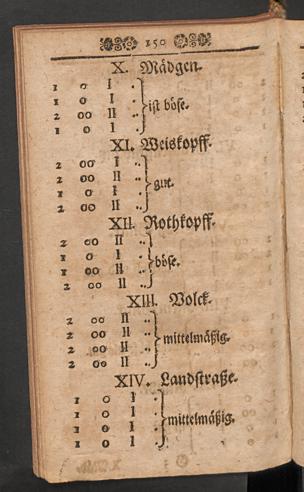 150
X. Mädgen.
1 o I .
1 o I .
2 oo II ..
1 o I .
ist böse.
XI. Weiskopff.
2 oo II ..
2 oo II ..
1 o I .
2 oo II ..
gut.
XII. Rothkopff.
2 oo II ..
1 o I .
2 oo II ..
2 oo II ..
böse.
XIII. Volck.
2 oo II ..
2 oo II ..
2 oo II ..
2 oo II ..
mittelmäßig.
XIV. Landstraße.
1 o I .
1 o I .
1 o I .
1 o I .
mittelmäßig.